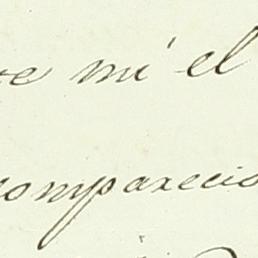 te mi el
comparecio